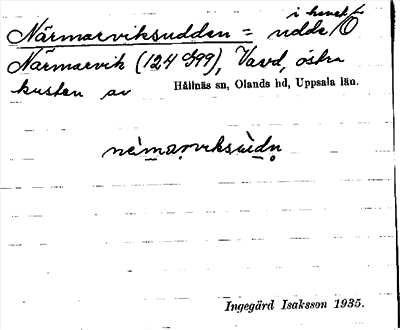 Närmarviksudden = udde i havet O
Närmarvik (124 C99), Vavd, östra
kusten av Hållnäs sn, Olands hd, Uppsala län.
Ingegärd Isaksson 1935.